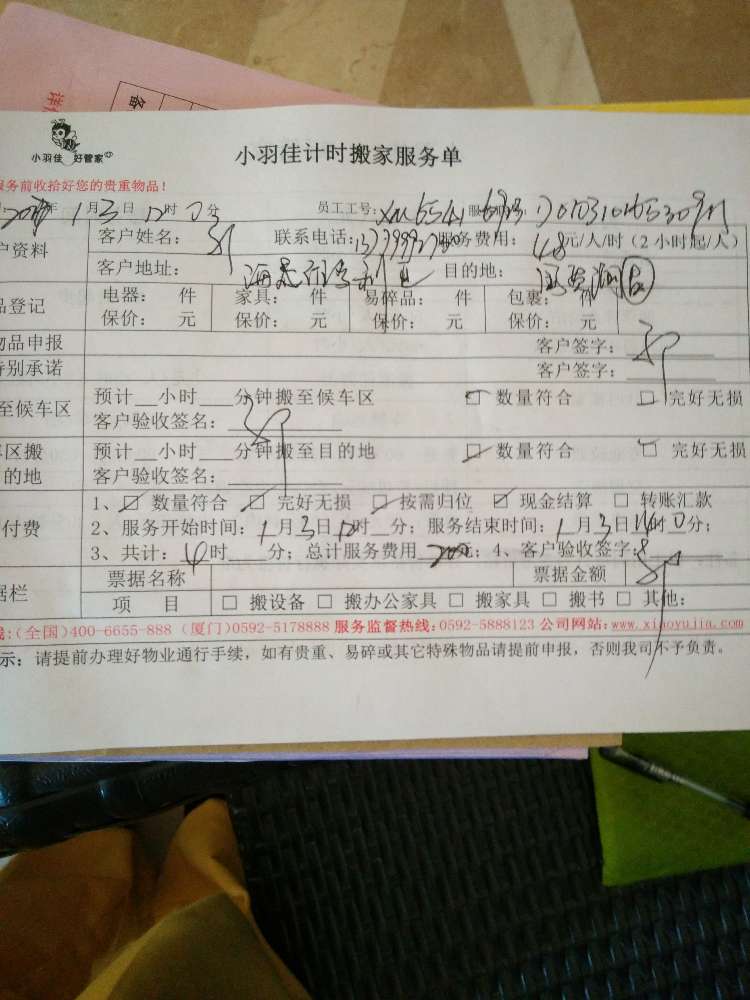 详
备
小羽佳 好管家
小羽佳计时搬家服务单
服务前收拾好您的贵重物品！
年1月3日12时0分 员工工号：
户资料 客户姓名： 联系电话： 服务费用：48元/人/时（2小时起/人）
客户地址： 目的地：
品登记 电器： 件 家具： 件 易碎品： 件 包裹： 件
保价： 元 保价： 元 保价： 元 保价： 元
物品申报 客户签字：
特别承诺 客户签字：
至候车区 预计__小时___分钟搬至候车区 数量符合 完好无损
客户验收签名：
车区搬 预计__小时___分钟搬至目的地 数量符合 完好无损
的地 客户验收签名：
付费 1、☑ 数量符合 ☑ 完好无损 ☑ 按需归位 ☑ 现金结算 □ 转账汇款
2、服务开始时间：1月3日12时__分；服务结束时间：1月3日16时0分；
3、共计：4时___分；总计服务费用 元；4、客户验收签字：
据栏 票据名称 票据金额
项 目 □ 搬设备 □ 搬办公家具 □ 搬家具 □ 搬书 □ 其他：
线：(全国)400-6655-888 (厦门)0592-5178888 服务监督热线：0592-5888123 公司网站：www.xiaoyujia.com
示：请提前办理好物业通行手续，如有贵重、易碎或其它特殊物品请提前申报，否则我司不予负责。